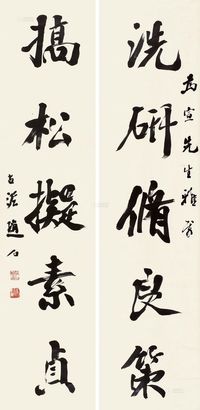 禹宣先生雅屬
洗研脩良策
搞松擬素貞
古泥趙石